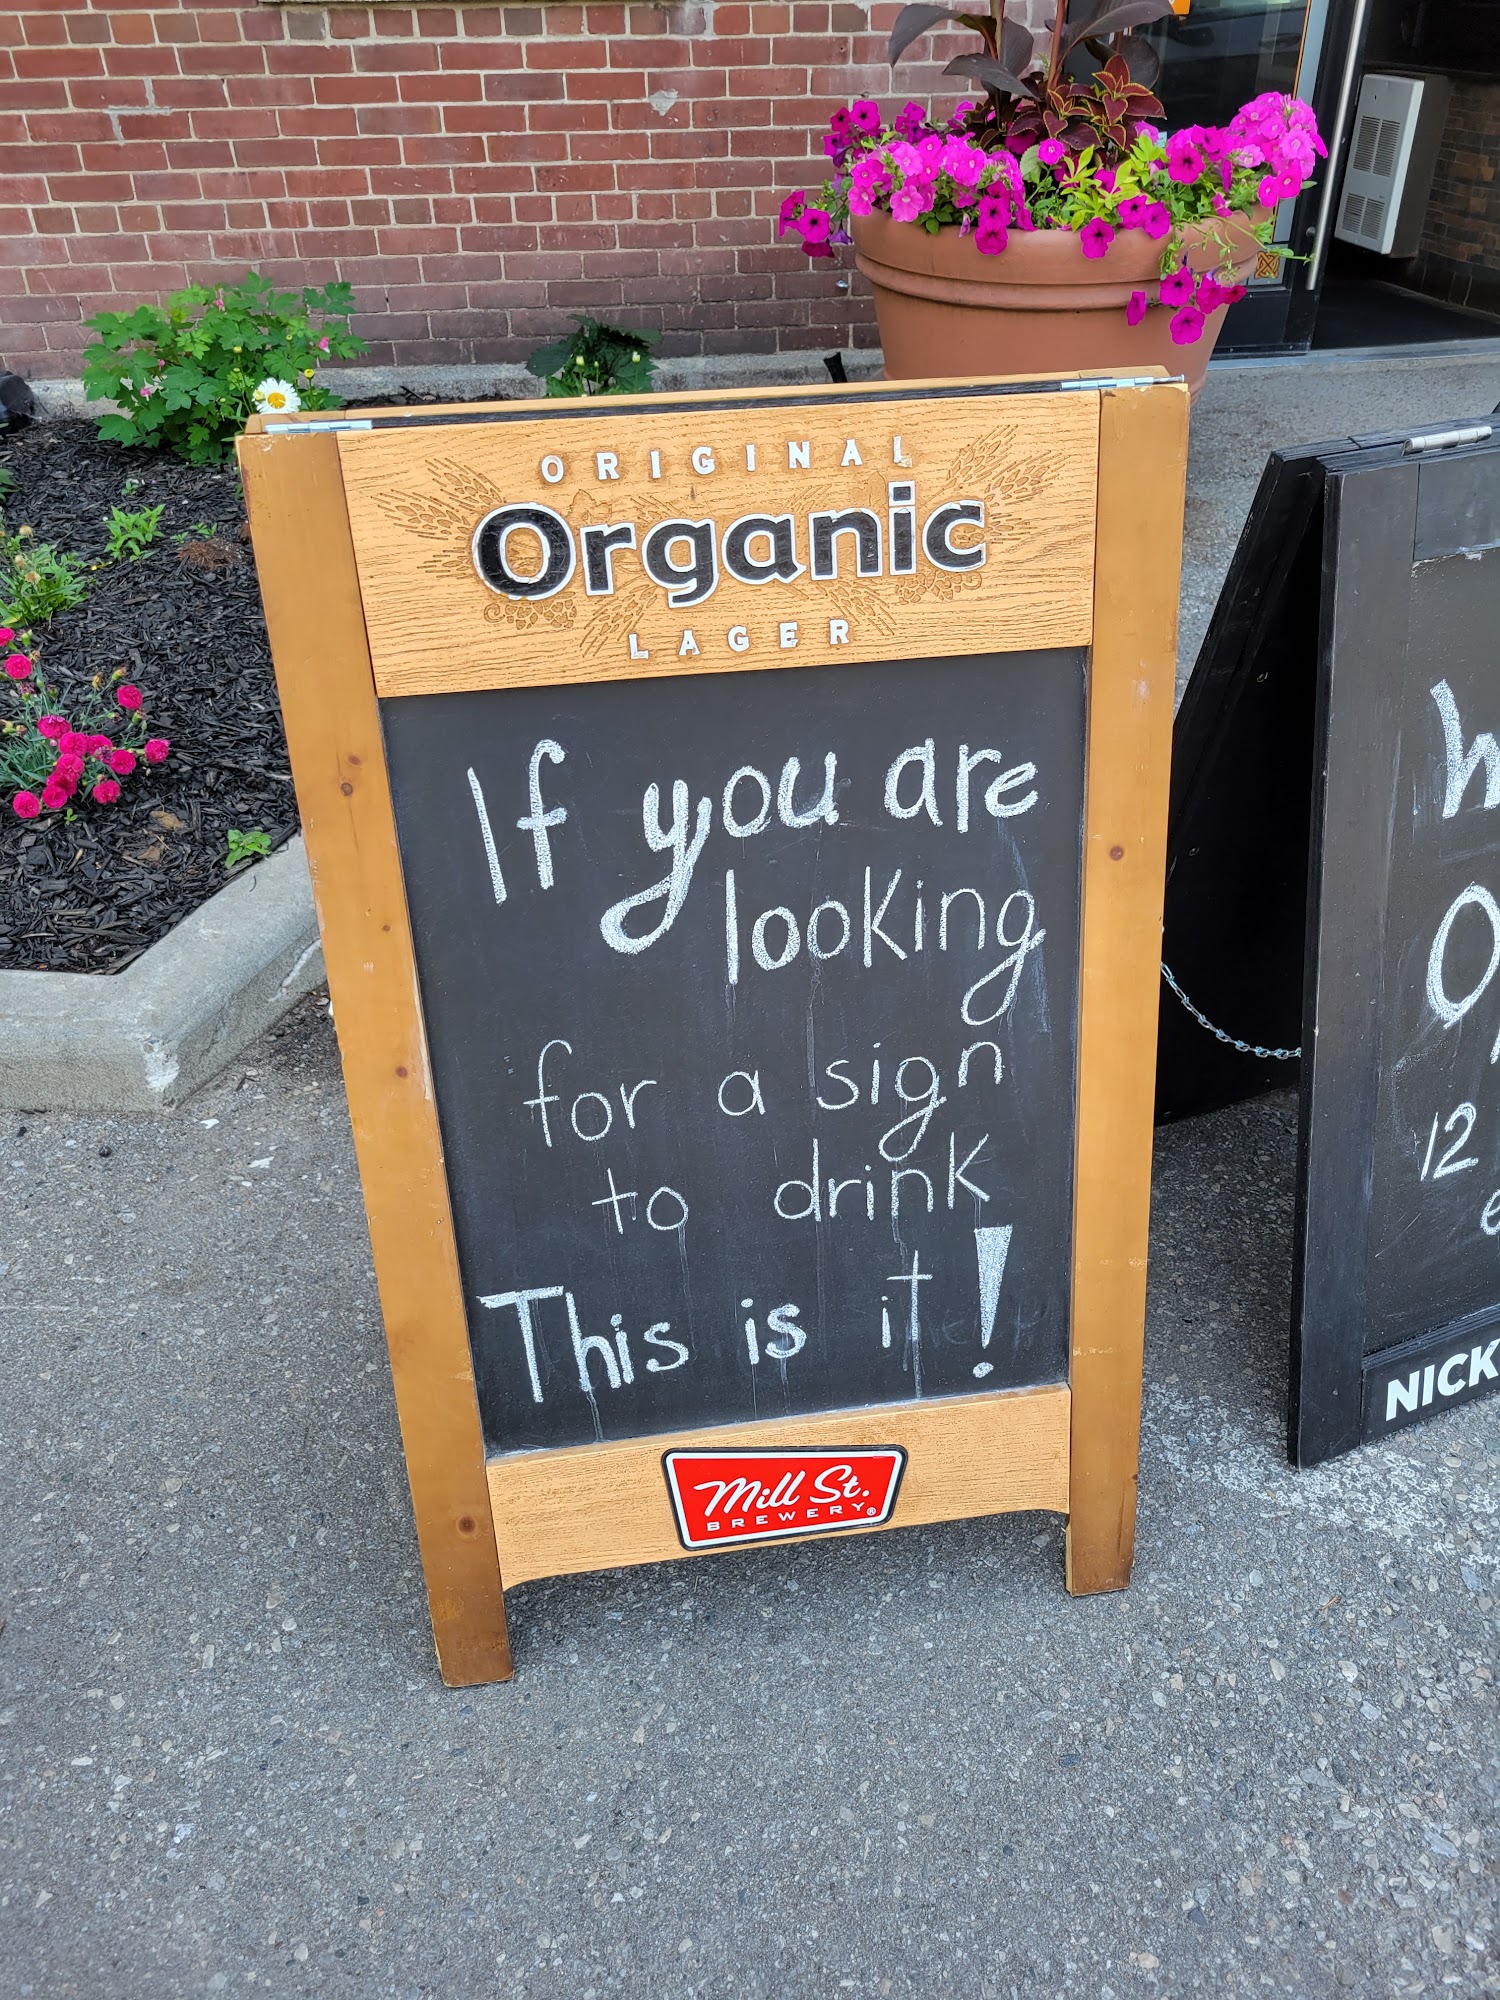 ORIGINAL
Organic
LAGER
If you are
looking
for a sign
to drink
This is it!
Mill St.
BREWERY®
12
NICK